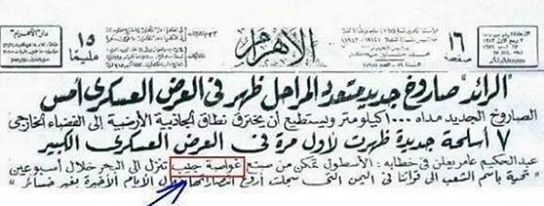 ١٦ صفحة
الأهرام
١٥ مليما
دار "الأهرام"
"الرائد" صاروخ جديد متعدد المراحل ظهر فى العرض العسكرى أمس
الصاروخ الجديد مداه ١٠٠٠ كيلومتر ويستطيع أن يخترق نطاق الجاذبية الأرضية إلى الفضاء الخارجى
٧ أسلحة جديدة ظهرت لأول مرة فى العرض العسكرى الكبير
عبد الحكيم عامر يعلن فى خطابه : الأسطول تمكن من صنع غواصة جيب تنزل إلى البحر خلال أسبوعين
"تحية باسم الشعب الى قواتنا فى اليمن التى سجلت أروع انتصاراتها خلال الأيام الأخيرة بغير خسائر"